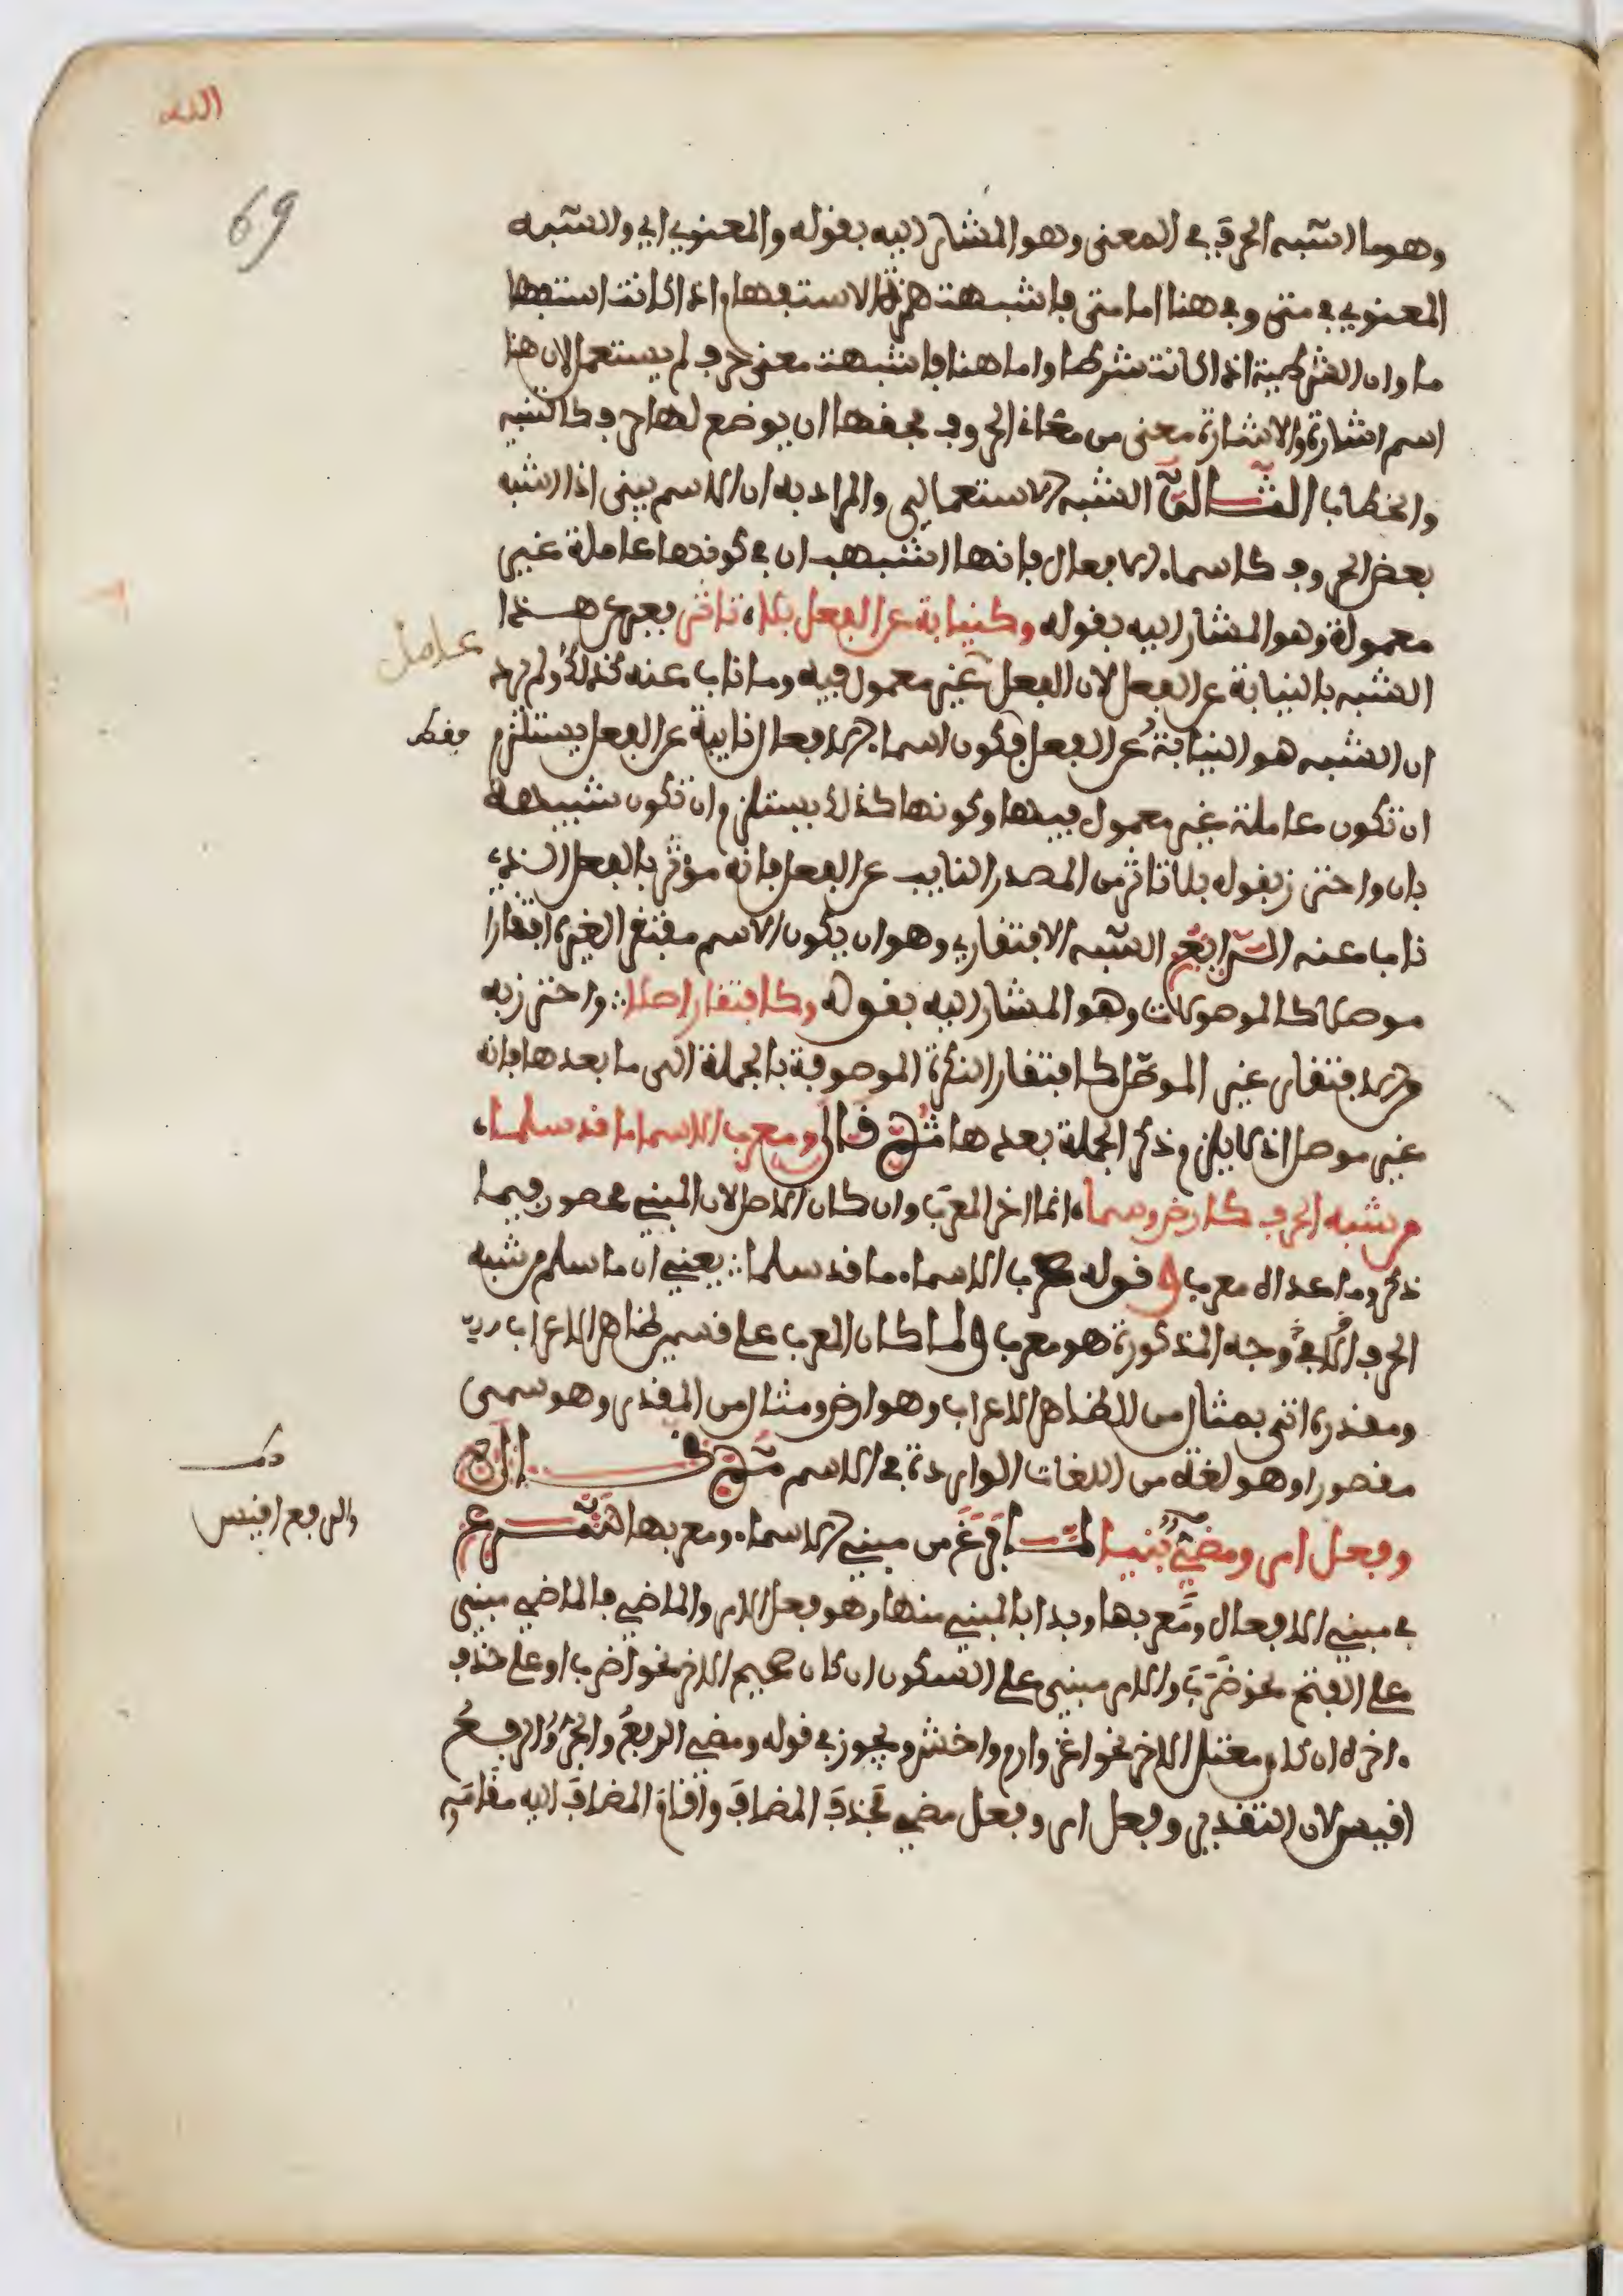 الله
69
وهو ما اشبه الحرف في المعنى وهو المشار اليه بقوله والمعنوي اي والشبه
المعنوي في متى وفي هنا اما متى فاشبهت همزة الاستفهام اذا كانت استفها
ما وان الشرطية اذا كانت شرطا واما هنا فاشبهت معنى حرف لم يستعمل لان هنا
اسم اشارة والاشارة معنى من معاني الحروف فحقها ان يوضع لها حرف كالتنبيه
والخطاب الثالث الشبه الاستعمالي والمراد به ان الاسم يبنى اذا اشبه
بعض الحروف كاسماء الافعال فانها اشبهت ان في كونها عاملة غير
معمولة وهو المشار اليه بقوله وكنيابة عن الفعل بلا تاثر فعبر عن هذا
عامل
الشبه بالنيابة عن الفعل لان الفعل غير معمول فيه وما ناب عنه كذلك ولم يرد
ان الشبه هو النيابة عن الفعل فكون اسماء الافعال نايبة عن الفعل يستلزم
فقط
ان تكون عاملة غير معمول فيها وكونها كذلك يستلزم ان تكون شبيهة
بان واحترز بقوله بلا تاثر من المصدر النايب عن الفعل فانه موثر بالفعل الذي
ناب عنه الرابع الشبه الافتقاري وهو ان يكون الاسم مفتقر الغيره افتقارا
موصلا كالموصولات وهو المشار اليه بقوله وكافتقار اصلا واحترز به
من افتقار غير الموصل كافتقار النكرة الموصوفة بالجملة الى ما بعدها فانه
غير موصل اذ لا يلزم ذكر الجملة بعدها ثم قال ومعرب الاسماء ما قد سلما
من شبه الحرف كارض وسما انما اخر المعرب وان كان الاصل لان المبني محصور فيما
ذكر وما عداه معرب وقوله معرب الاسماء ما قد سلما يعني ان ما سلم من شبه
الحرف في الاوجه المذكورة هو معرب ولما كان المعرب على قسمين ظاهر الاعراب
ومقدره اتى بمثال من الظاهر الاعراب وهو ارض ومثال من المقدر وهو سمى
مقصورا وهو لغة من اللغات الواردة في الاسم ثم قال
وفعل امر ومضي بنيا لما فرغ من مبني الاسماء ومعربها شرع
والرفع اقيس
في مبني الافعال ومعربها وبدا بالمبني منها وهو فعل الامر والماضي فالماضي مبني
على الفتح نحو ضرب والامر مبني على السكون ان كان صحيح الاخر نحو اضرب او على حذف
اخره ان كان معتل الاخر نحو اغز وارم واخش ويجوز في قوله ومضي الرفع والجر والرفع
اقيس لان التقدير وفعل امر وفعل مضي فحذف المضاف واقام المضاف اليه مقامه